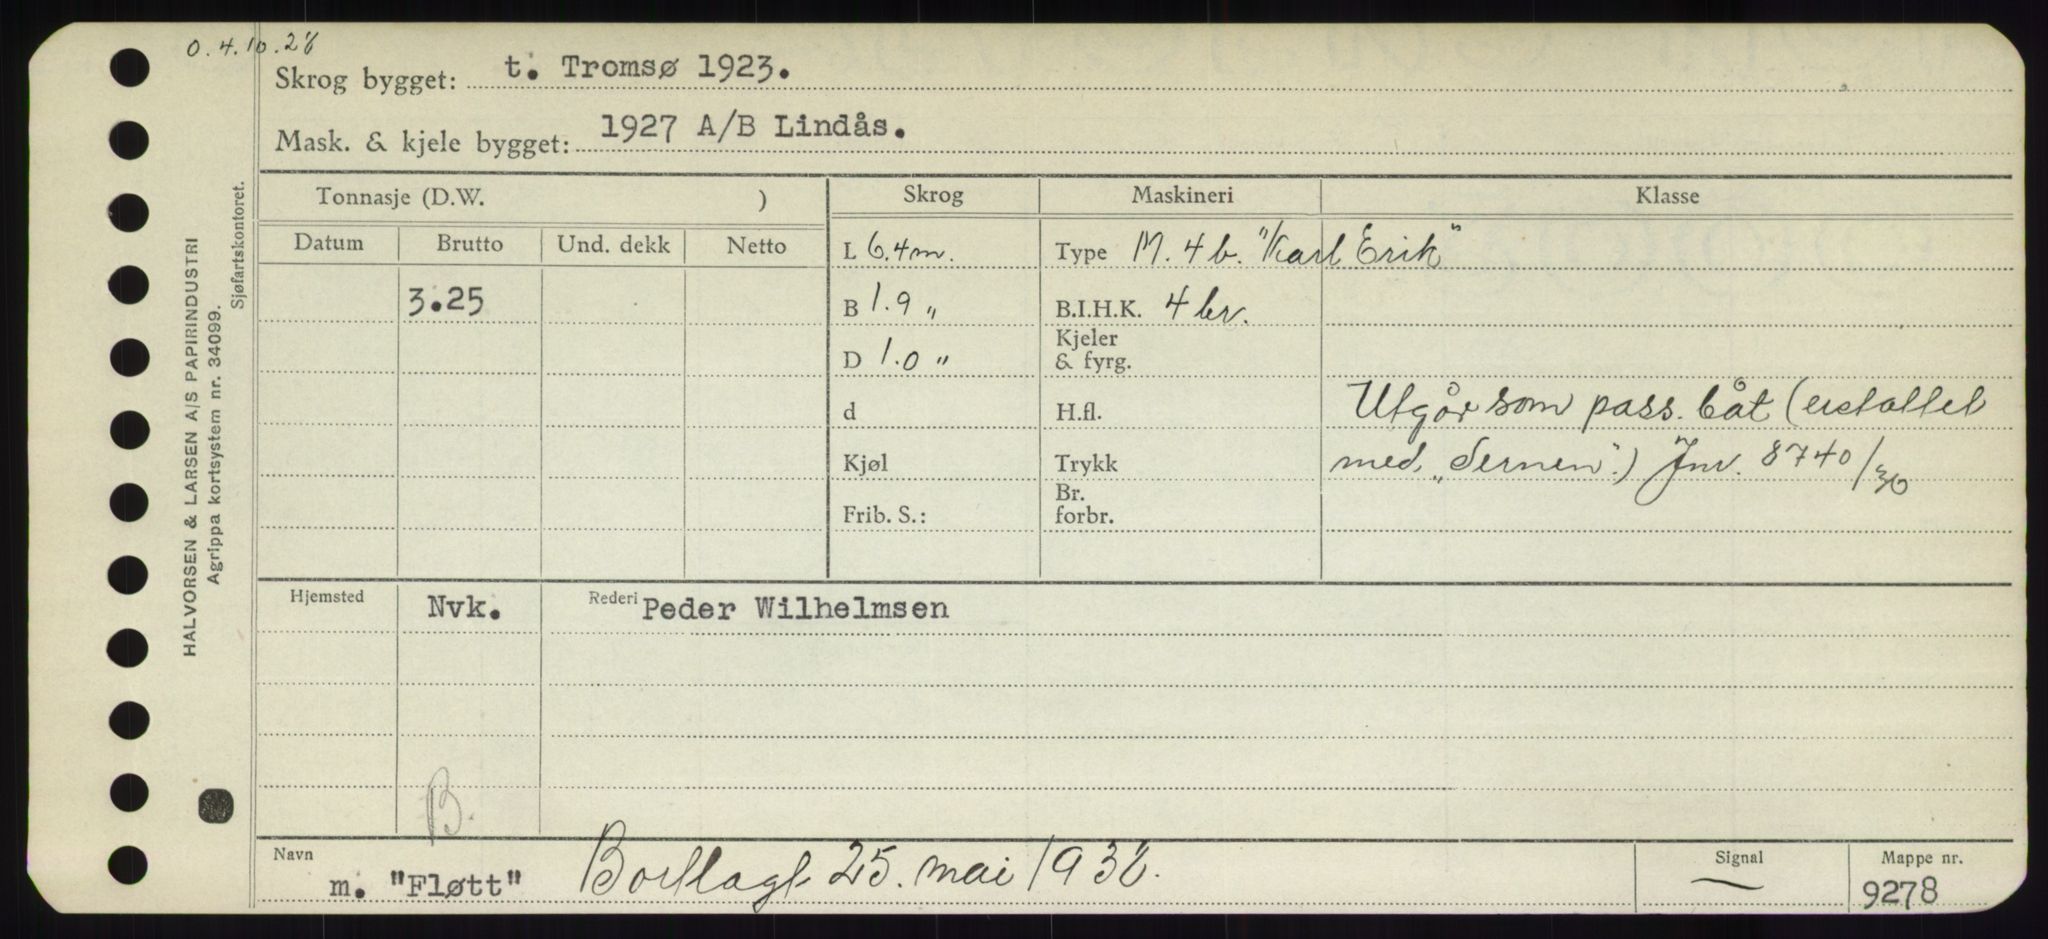 O. 4.10.28
Skrog bygget: t. Tromsø 1923.
Mask. & kjele bygget: 1927 A/B Lindås.
HALVORSEN & LARSEN A/S PAPIRINDUSTRI
Agrippa kortsystem nr. 34099.
Sjøfartskontoret.
Tonnasje (D.W. ) Skrog Maskineri Klasse
Datum Brutto Und. dekk Netto
L 6.4 m. Type M. 4 b. "Karl Erik"
3.25 B 1.9 " B.I.H.K. 4 br.
D 1.0 " Kjeler & fyrg.
d H.fl. Utgår som pass. båt (erstattet
Kjøl Trykk med "Ternen".) Jnr. 8740/36
Frib. S.: Br. forbr.
Hjemsted Nvk. Rederi Peder Wilhelmsen
B.
Navn m. "Fløtt" Bortlagt 25. mai 1938.
Signal —
Mappe nr. 9278